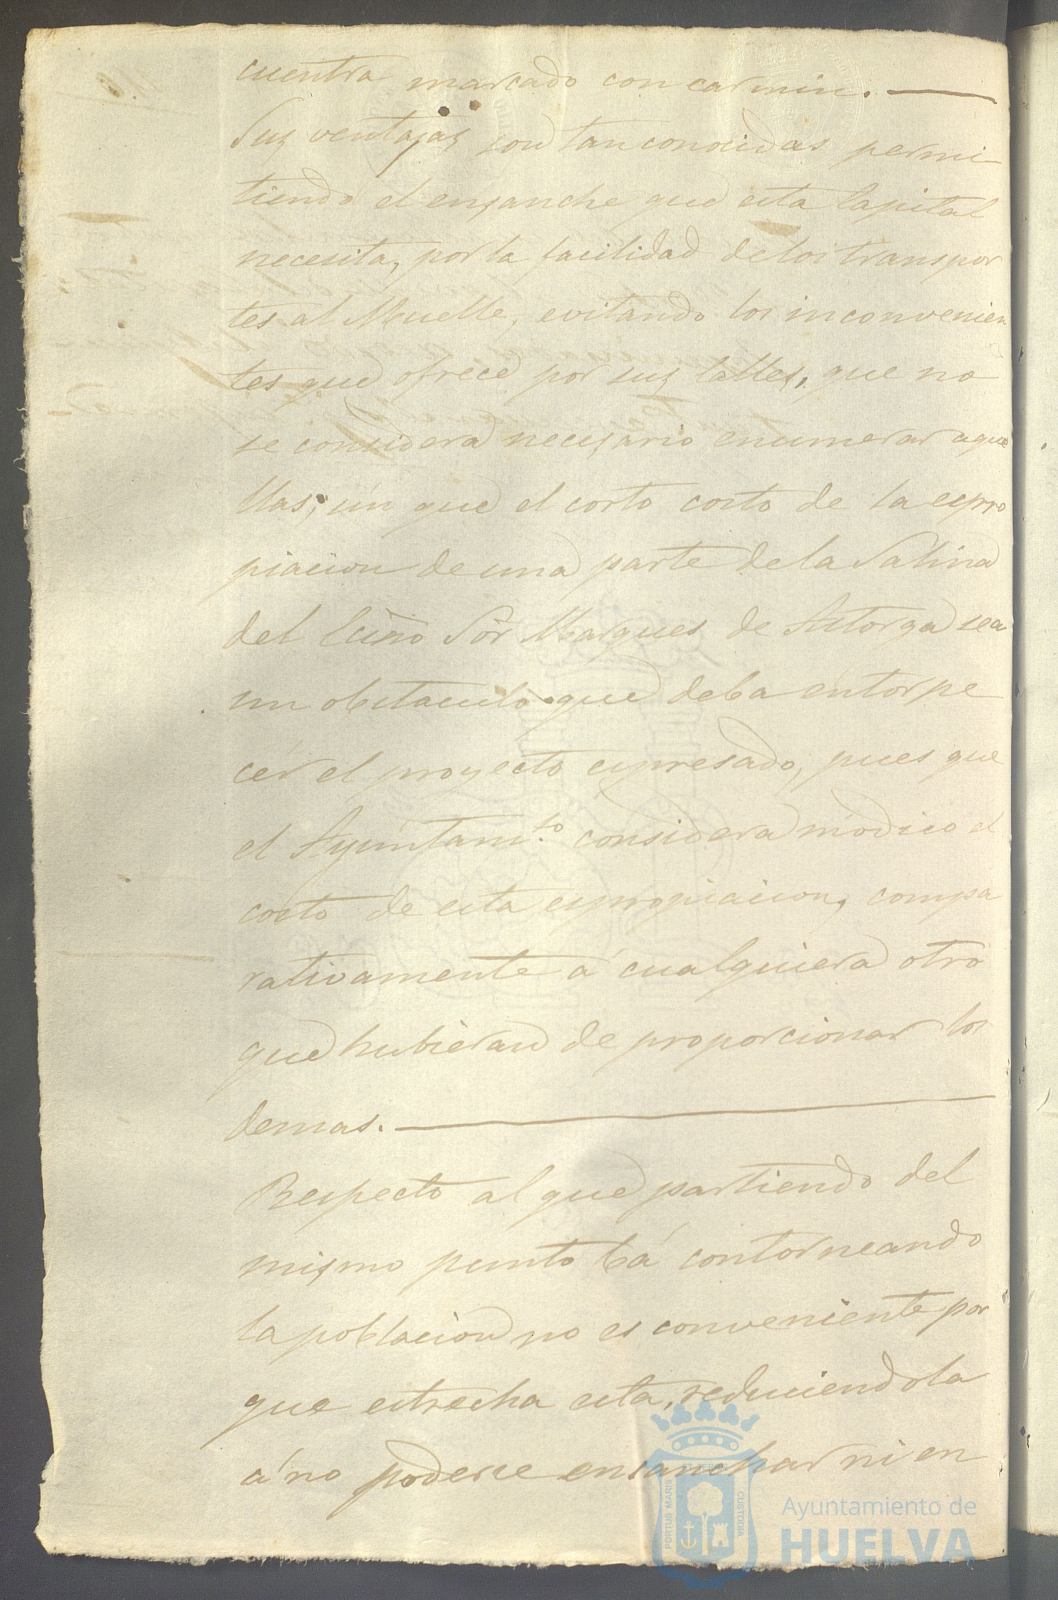 cuentra marcado con carmin. —
Sus ventajas son tan conocidas permi
tiendo el ensanche que esta Capital
necesita, por la facilidad de los transpor
tes al Muelle, evitando los inconvenien
tes que ofrece por sus calles, que no
se considera necesario enumerar aque
llas; sin que el corto costo de la espro
piacion de una parte de la Salina
del Ecmo Sõr Marques de Astorga sea
un obstaculo que deba entorpe
cer el proyecto espresado, pues que
el Ayuntam.to considera modico el
costo de esta espropiacion, compa
rativamente á cualquiera otro
que hubieran de proporcionar los
demas. —
Respecto al que partiendo del
mismo punto bá contorneando
la poblacion no es conveniente por
que estrecha esta, reduciendola
á no poderse ensanchar ni en
Ayuntamiento de
HUELVA
PORTUS MARIS
CUSTODIA